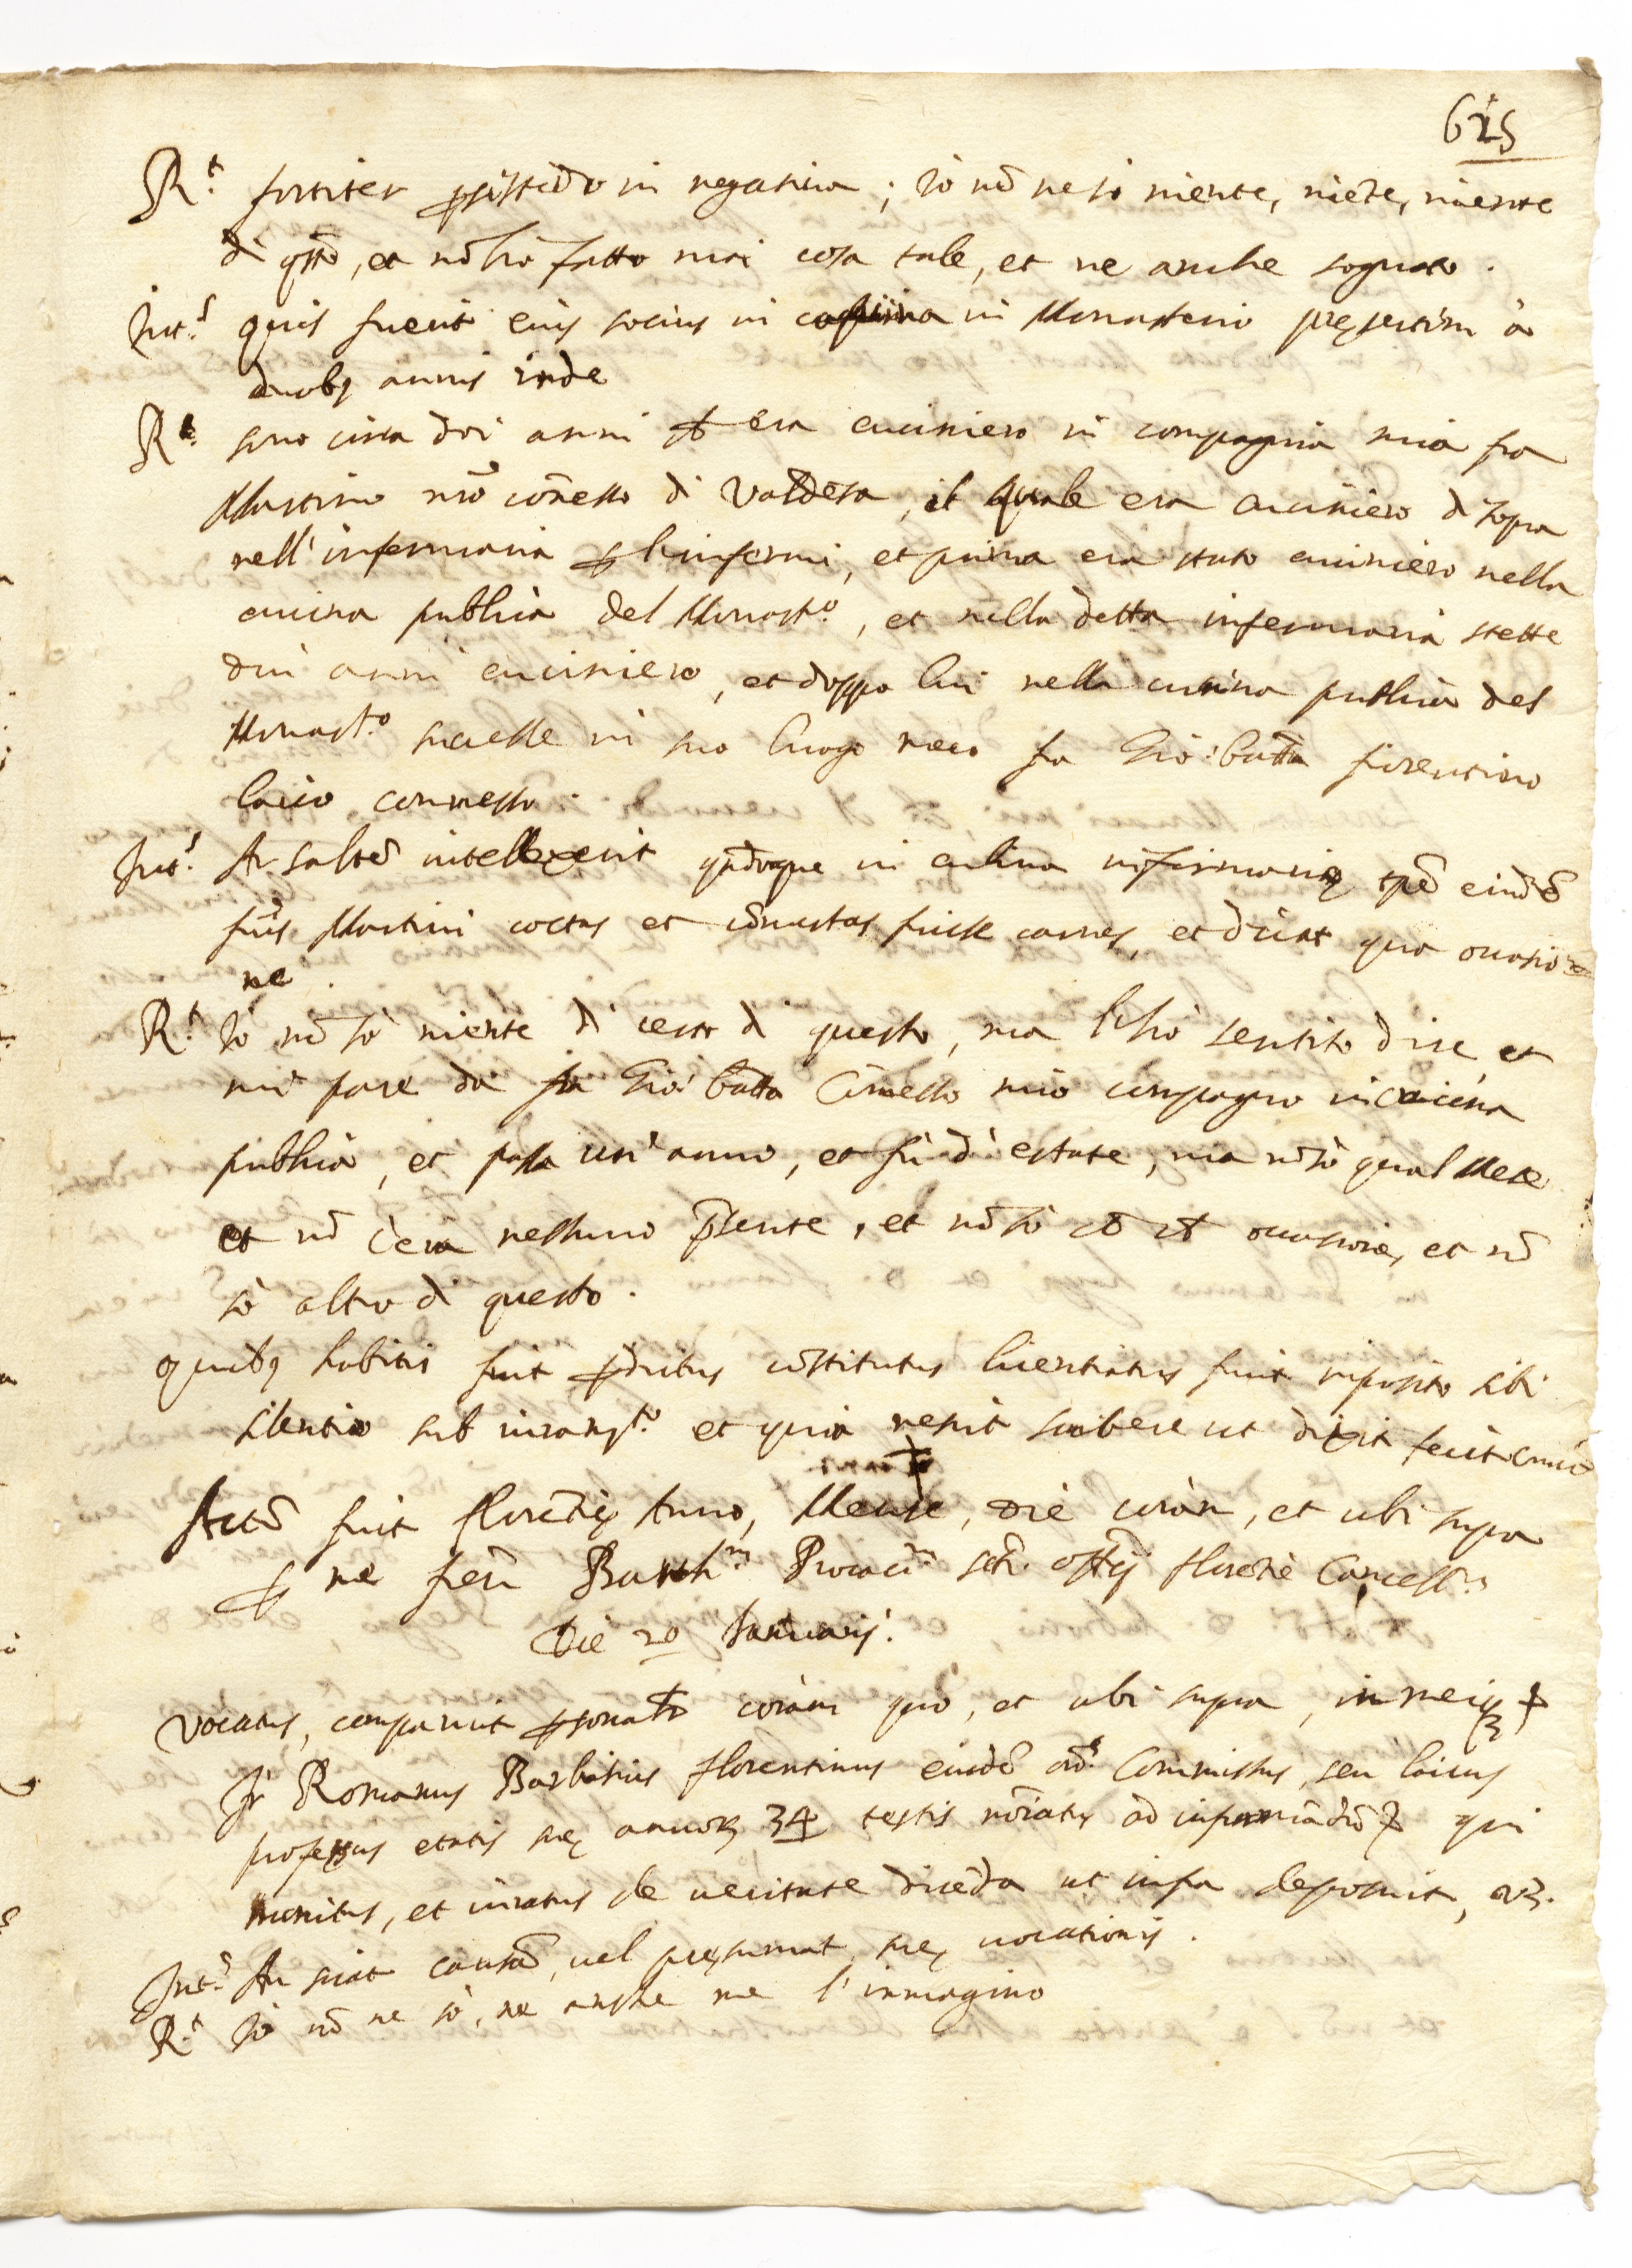 625
R.t fortiter psistēdo in negativa; Io nō ne so niente, niēte, niente
di qsto, et nō ho fatto mai cosa tale, et ne anche sognato.
Int.s quis fuerit eius socius in coquina in Monasterio pręsertim à
duobq annis inde
R.t sono circa doi anni ch era cuciniero in compagnia mia fra
Martino nr̄o cōnesso di Valdesa, il quale era cuciniero di sopra
nell'infermaria p l'infermi, et prima era stato cuciniero nella
cucina publica del Monast.o, et nella detta infermaria stette
dui anni cuciniero, et doppo lui nella cucina publica del
Monast.o successe in suo luogo meco fra Gio: batta fiorentino
laico connesso.
Int.s An saltē intellexerit qn̄doque in culina infirmarię tpē eiusdē
fr̄is Martini coctas et cōmestas fuisse carnes, et dicat qua occasio=
ne.
R.t Io nō so niente di certo di questo, ma l'ho sentito dire, et
mi pare da fra Gio: batta Cōnesso mio compagno in cucina
publica, et passa un'anno, et fù d'estate, ma nō sò qual Mese
et nō c'era nessuno pn̄te, et nō sò cō ch occasione, et nō
sò altro di questo.
quibq habitis fuit pn̄tibus cōstitutus licentiatus fuit imposito sibi
silentio sub iuram.to et quia nescit scribere ut dixit fecit Crucē
✝
Actū fuit florētię Anno, Mense, Die coram, et ubi supra
p me frem̄ Barth.m Procacc.m sti offij florētie Cancell.m
Die 20 Januarij.
Vocatus, comparuit psonalr coram quo, et ubi supra, in meiq
fr Romanus Barbatius florentinus eiusdē ord.s Commissus, seu laicus
professus etatis suę annorum 34 testis nōiatus ad informādū qui
monitus, et iuratus de veritate dicēda ut infra deposuit,
Int.s An sciat causā, vel pręsumat suę vocationis.
R.t Io nō ne so, ne anche me l'immagino